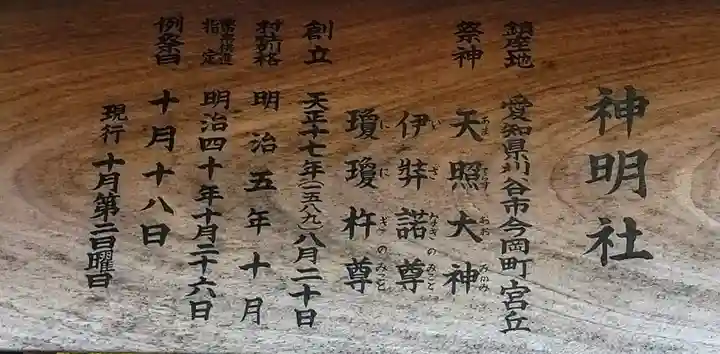 神明社
鎮座地 愛知県刈谷市今岡町宮丘
祭神 天照大神
あま てらす おお みかみ
伊弉諾尊
い ざ なぎ の みこと
瓊瓊杵尊
に に ぎ の みこと
創立 天正十七年(一五八九)八月二十日
村社格 明治五年十月
指定 明治四十年十月二十六日
例祭日 十月十八日
現行 十月第二日曜日